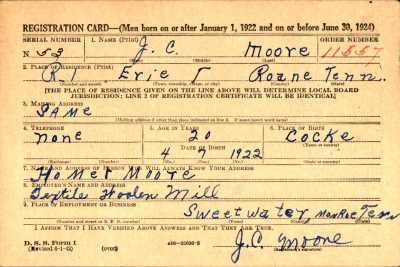 REGISTRATION CARD—(Men born on or after January 1, 1922 and on or before June 30, 1924)
SERIAL NUMBER 1. NAME (Print) ORDER NUMBER
N 53 J. C. Moore 11557
(First) (Middle) (Last)
2. PLACE OF RESIDENCE (Print)
R. 1 Erie Roane Tenn.
(Number and street) (Town, township, village, or city) (County) (State)
[THE PLACE OF RESIDENCE GIVEN ON THE LINE ABOVE WILL DETERMINE LOCAL BOARD
JURISDICTION; LINE 2 OF REGISTRATION CERTIFICATE WILL BE IDENTICAL]
3. MAILING ADDRESS
SAME
[Mailing address if other than place indicated on line 2. If same insert word same]
4. TELEPHONE 5. AGE IN YEARS 6. PLACE OF BIRTH
none 20 Cocke
DATE OF BIRTH
4 7 1922
(Exchange) (Number) (Mo.) (Day) (Yr.) (State or country)
7. NAME AND ADDRESS OF PERSON WHO WILL ALWAYS KNOW YOUR ADDRESS
Homer Moore
8. EMPLOYER'S NAME AND ADDRESS
Textile Woolen Mill
9. PLACE OF EMPLOYMENT OR BUSINESS
Sweetwater, Monroe Tenn
(Number and street or R. F. D. number) (Town) (County) (State)
I AFFIRM THAT I HAVE VERIFIED ABOVE ANSWERS AND THAT THEY ARE TRUE.
D. S. S. Form 1
(Revised 6-1-42) (over) J. C. Moore